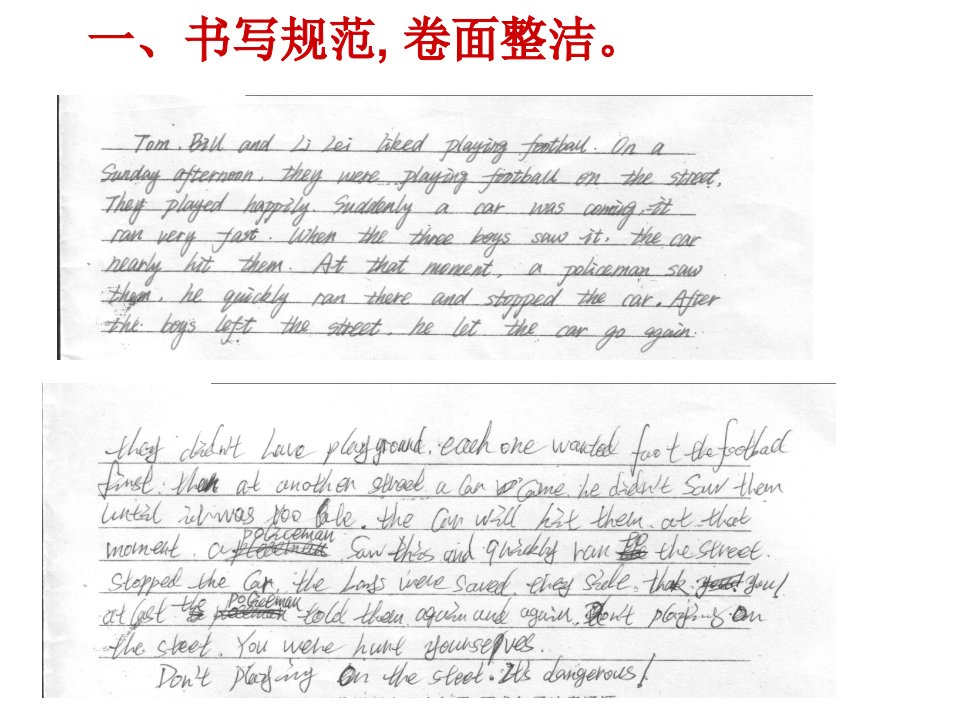 一、书写规范, 卷面整洁。
Tom, Bill and Li Lei liked playing football. On a
Sunday afternoon, they were playing football on the street.
They played happily. Suddenly a car was coming, it
ran very fast. When the three boys saw it, the car
nearly hit them. At that moment, a policeman saw
them, he quickly ran there and stopped the car. After
the boys left the street, he let the car go again
they didn't have playground. each one wanted foot the football
first. then at another street a car came. he didn't saw them
until it was too the car will hit them. at that
moment. a policeman saw this and quickly ran to the street.
stopped the car the boys were saved. they you!
at last the policeman told them again and again. Don't playing on
the steet. You were hurt yourselves.
Don't playing on the steet. It's dangerous!